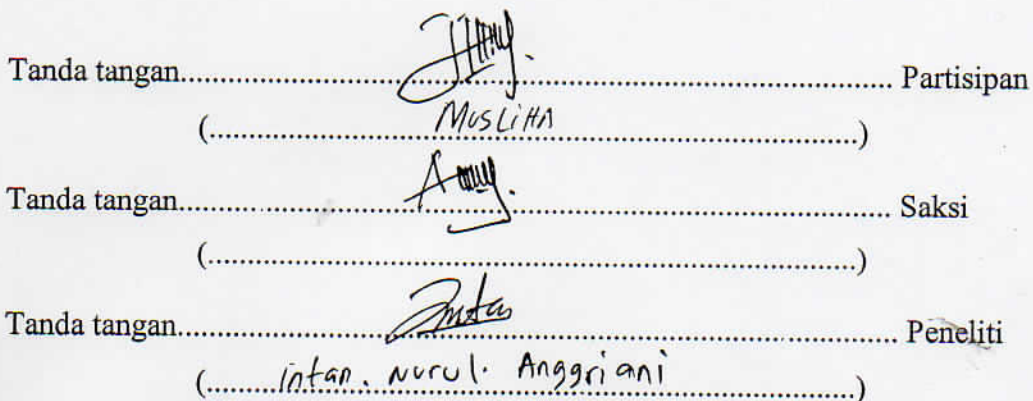 Tanda tangan.......................................................................................... Partisipan
(............MUSLIHA............)
Tanda tangan.......................................................................................... Saksi
(..................................................................................)
Tanda tangan.......................................................................................... Peneliti
(.........intan. Nurul. Anggriani.........)